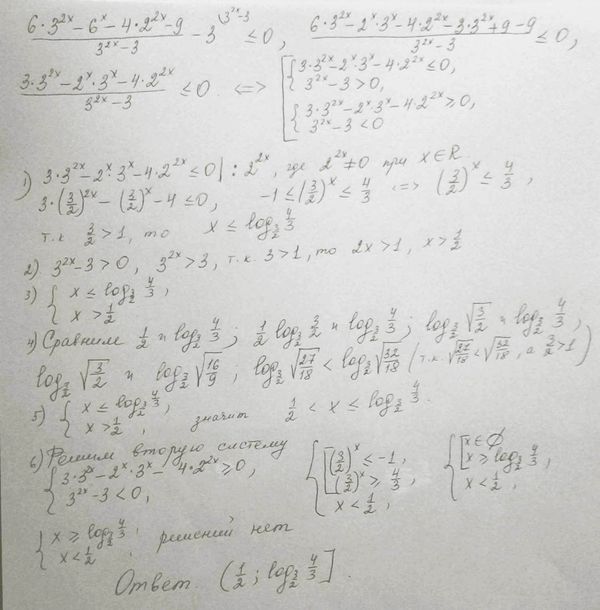 (6·3^{2x} − 6^x − 4·2^{2x} − 9)/(3^{2x} − 3) − 3 ≤ 0, (6·3^{2x} − 2^x·3^x − 4·2^{2x} − 3·3^{2x} + 9 − 9)/(3^{2x} − 3) ≤ 0,
(3·3^{2x} − 2^x·3^x − 4·2^{2x})/(3^{2x} − 3) ≤ 0 <=> [ { 3·3^{2x} − 2^x·3^x − 4·2^{2x} ≤ 0, 3^{2x} − 3 > 0, { 3·3^{2x} − 2^x·3^x − 4·2^{2x} ≥ 0, 3^{2x} − 3 < 0
1) 3·3^{2x} − 2^x·3^x − 4·2^{2x} ≤ 0 | : 2^{2x}, где 2^{2x} ≠ 0 при x ∈ R
3·(3/2)^{2x} − (3/2)^x − 4 ≤ 0, −1 ≤ (3/2)^x ≤ 4/3 <=> (3/2)^x ≤ 4/3,
т.к 3/2 > 1, то x ≤ log_{3/2} 4/3
2) 3^{2x} − 3 > 0, 3^{2x} > 3, т.к. 3 > 1, то 2x > 1, x > 1/2
3) { x ≤ log_{3/2} 4/3,
x > 1/2
4) Сравним 1/2 и log_{3/2} 4/3; 1/2 log_{3/2} 3/2 и log_{3/2} 4/3; log_{3/2} √(3/2) и log_{3/2} 4/3;
log_{3/2} √(3/2) и log_{3/2} √(16/9); log_{3/2} √(27/18) < log_{3/2} √(32/18) (т.к. √(27/18) < √(32/18), а 3/2 > 1)
5) { x ≤ log_{3/2} 4/3, x > 1/2, значит 1/2 < x ≤ log_{3/2} 4/3.
6) Решим вторую систему
{ 3·3^{2x} − 2^x·3^x − 4·2^{2x} ≥ 0, 3^{2x} − 3 < 0, { [ (3/2)^x ≤ −1, (3/2)^x ≥ 4/3, x < 1/2, { [ x ∈ ∅ x ≥ log_{3/2} 4/3, x < 1/2,
{ x ≥ log_{3/2} 4/3, x < 1/2, решений нет
Ответ. (1/2; log_{3/2} 4/3].